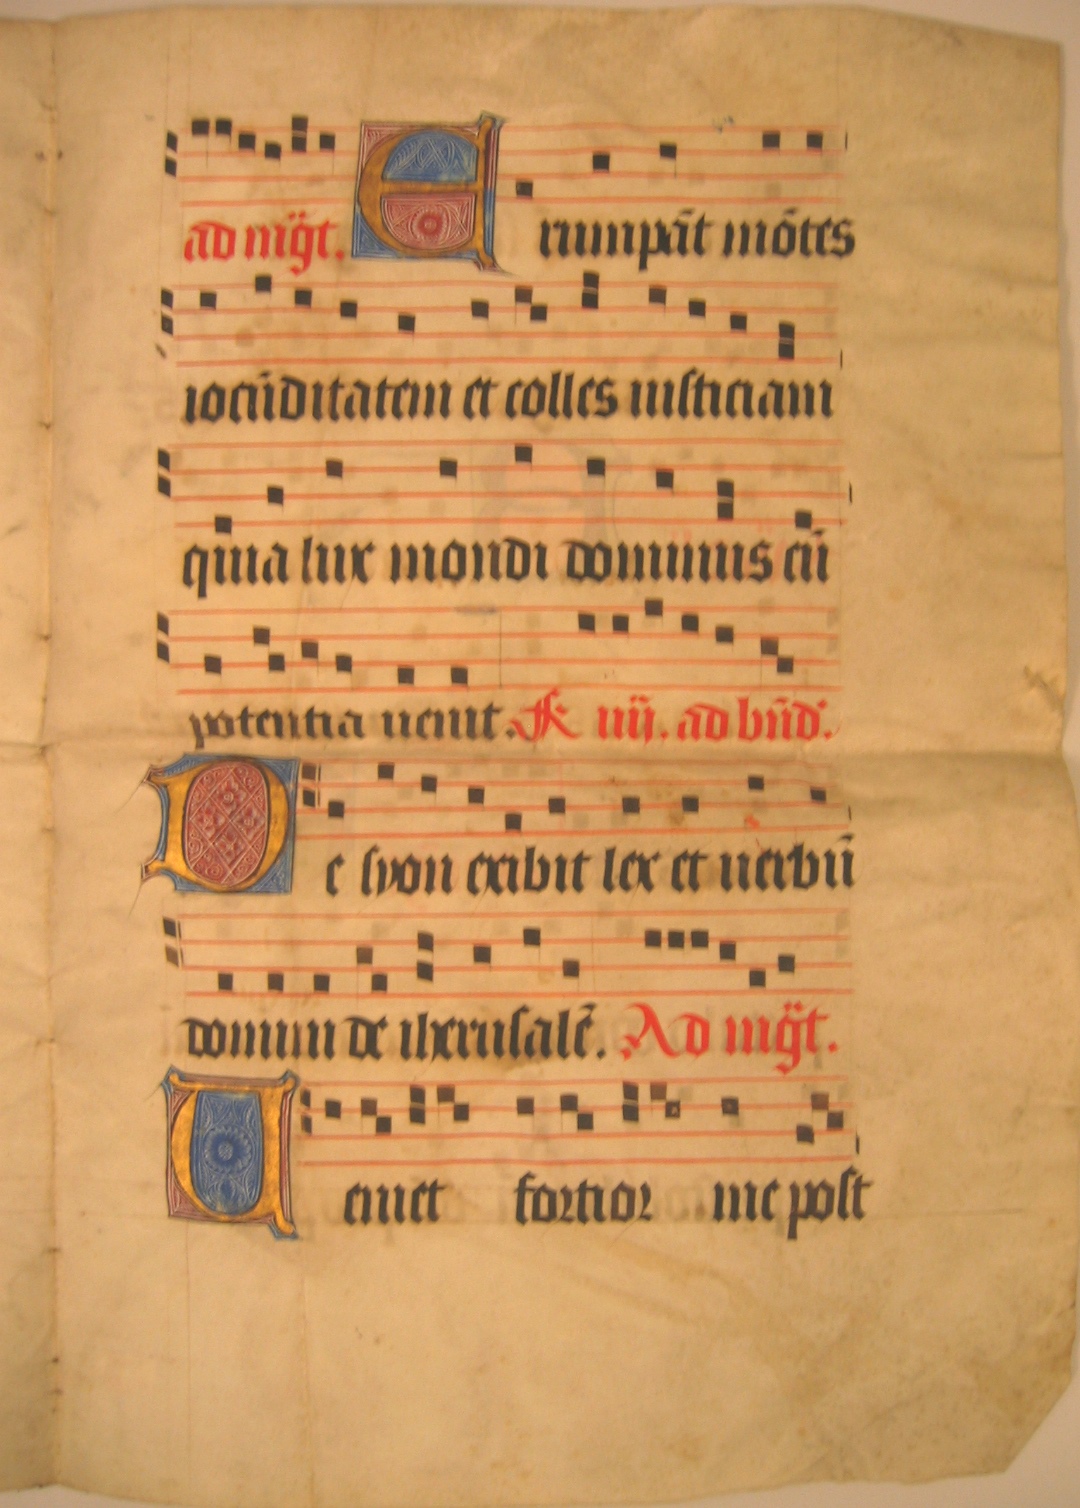 ad mg̃t. Erumpāt mōtes
iocūditatem et colles iusticiam
quia lux mondi dominus cū
potentia uenit. F̃ iiij. ad bñd.
De syon exibit lex et uerbū
domini de iherusalē. Ad mg̃t.
Ueniet fortior me post